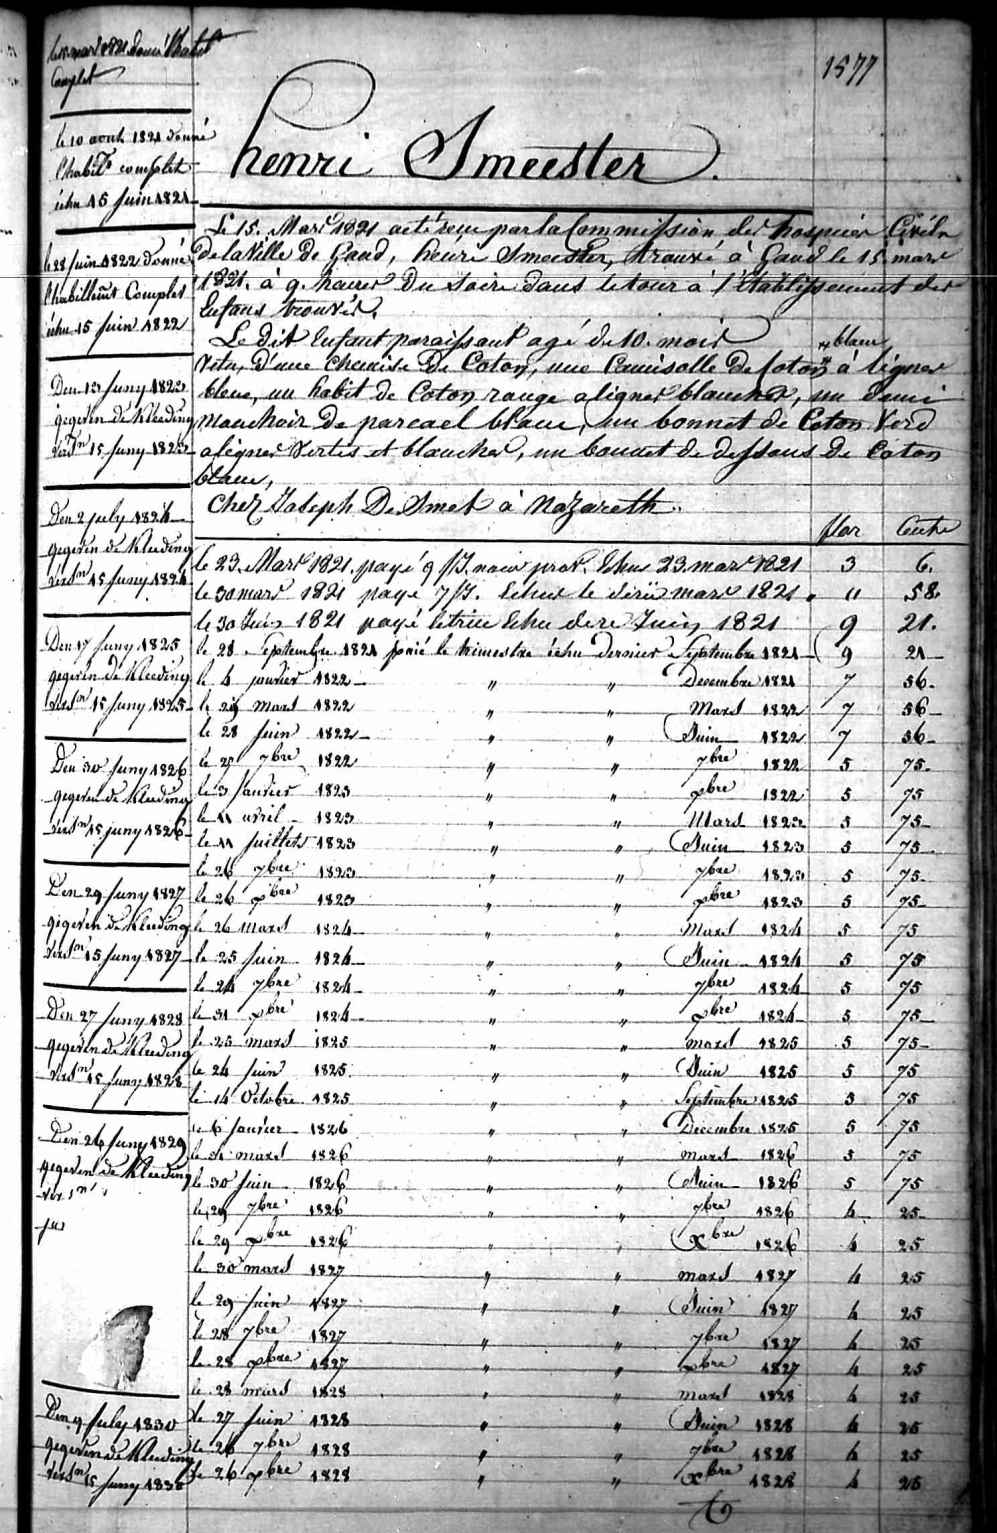 1577
Complet
le 10 avril 1821 donné
l'habilt complet
échu 15 juin 1821
le 28 juin 1822 donné
l'habillemt Complet
échu 15 juin 1822
Den 13 juny 1823
gegeven de Kleeding
versn 15 juny 1823
Den 2 july 1824
gegeven de Kleeding
versn 15 juny 1824
Den 17 juny 1825
gegeven de Kleeding
versn 15 juny 1825
Den 30 juny 1826
gegeven de Kleeding
versn 15 juny 1826
Den 29 juny 1827
gegeven de Kleeding
versn 15 juny 1827
Den 27 juny 1828
gegeven de Kleeding
versn 15 juny 1828
Den 26 juny 1829
gegeven de Kleeding
Den 9 july 1830
gegeven de Kleeding
versn 15 juny 1830
henri Smeester.
Le 15. Mars 1821 a été reçu par la Commission des hospices Civils
de la Ville de Gand, henri Smeester, trouvé à Gand le 15 mars
1821. à 9. heures du Soire dans le tour à l'Etablissement des
Enfans trouvés.
Le dit Enfant paraissant agé de 10. mois
Vetu, d'une Chemise de Coton, une Camisolle de Coton blanc à lignes
bleue, un habit de Coton rouge a lignes blanches, un demi
Mouchoir de parcael blanc, un bonnet de Coton Verd
a lignes Vertes et blanches, un bonnet de dessous de Coton
blanc,
Chez Joseph De Smet à Nazareth.
flor Cents
le 23. Mars 1821. payé 9 Echus 23. mars 1821 3 6.
le 30 mars 1821 payé 7 Echus le mars 1821 " 58.
le 30 Juin 1821 payé le Echu Juin 1821 9 21.
le 28 Septembre 1821 paié le trimestre échu dernier Septembre 1821 9 21
le 4 janvier 1822 " " Decembre 1821 7 56.
le 29 mars 1822 " " Mars 1822 7 56
le 28 juin 1822 " " Juin 1822 7 56
le 27 7bre 1822 " " 7bre 1822 5 75.
le 3 Janvier 1823 " " xbre 1822 5 75
le 11 avril 1823 " " Mars 1823 5 75
le 11 juillet 1823 " " Juin 1823 5 75.
le 26 7bre 1823 " " 7bre 1823 5 75.
le 26 xbre 1823 " " xbre 1823 5 75
le 26 mars 1824 " " Mars 1824 5 75
le 25 juin 1824 " " Juin 1824 5 75
le 24 7bre 1824 " " 7bre 1824 5 75
le 31 xbre 1824 " " xbre 1824 5 75
le 25 mars 1825 " " mars 1825 5 75
le 24 juin 1825 " " Juin 1825 5 75
le 14 Octobre 1825 " " Septembre 1825 5 75
le 6 janvier 1826 " " Décembre 1825 5 75
le 31 mars 1826 " " mars 1826 5 75
le 30 juin 1826 " " Juin 1826 5 75
le 29 7bre 1826 " " 7bre 1826 4 25
le 29 xbre 1826 " " Xbre 1826 4 25
le 30 mars 1827 " " mars 1827 4 25
le 29 juin 1827 " " Juin 1827 4 25
le 28 7bre 1827 " " 7bre 1827 4 25
le 28 xbre 1827 " " xbre 1827 4 25
le 28 mars 1828 " " mars 1828 4 25
le 27 juin 1828 " " Juin 1828 4 25
le 26 7bre 1828 " " 7bre 1828 4 25
le 26 xbre 1828 " " Xbre 1828 4 25